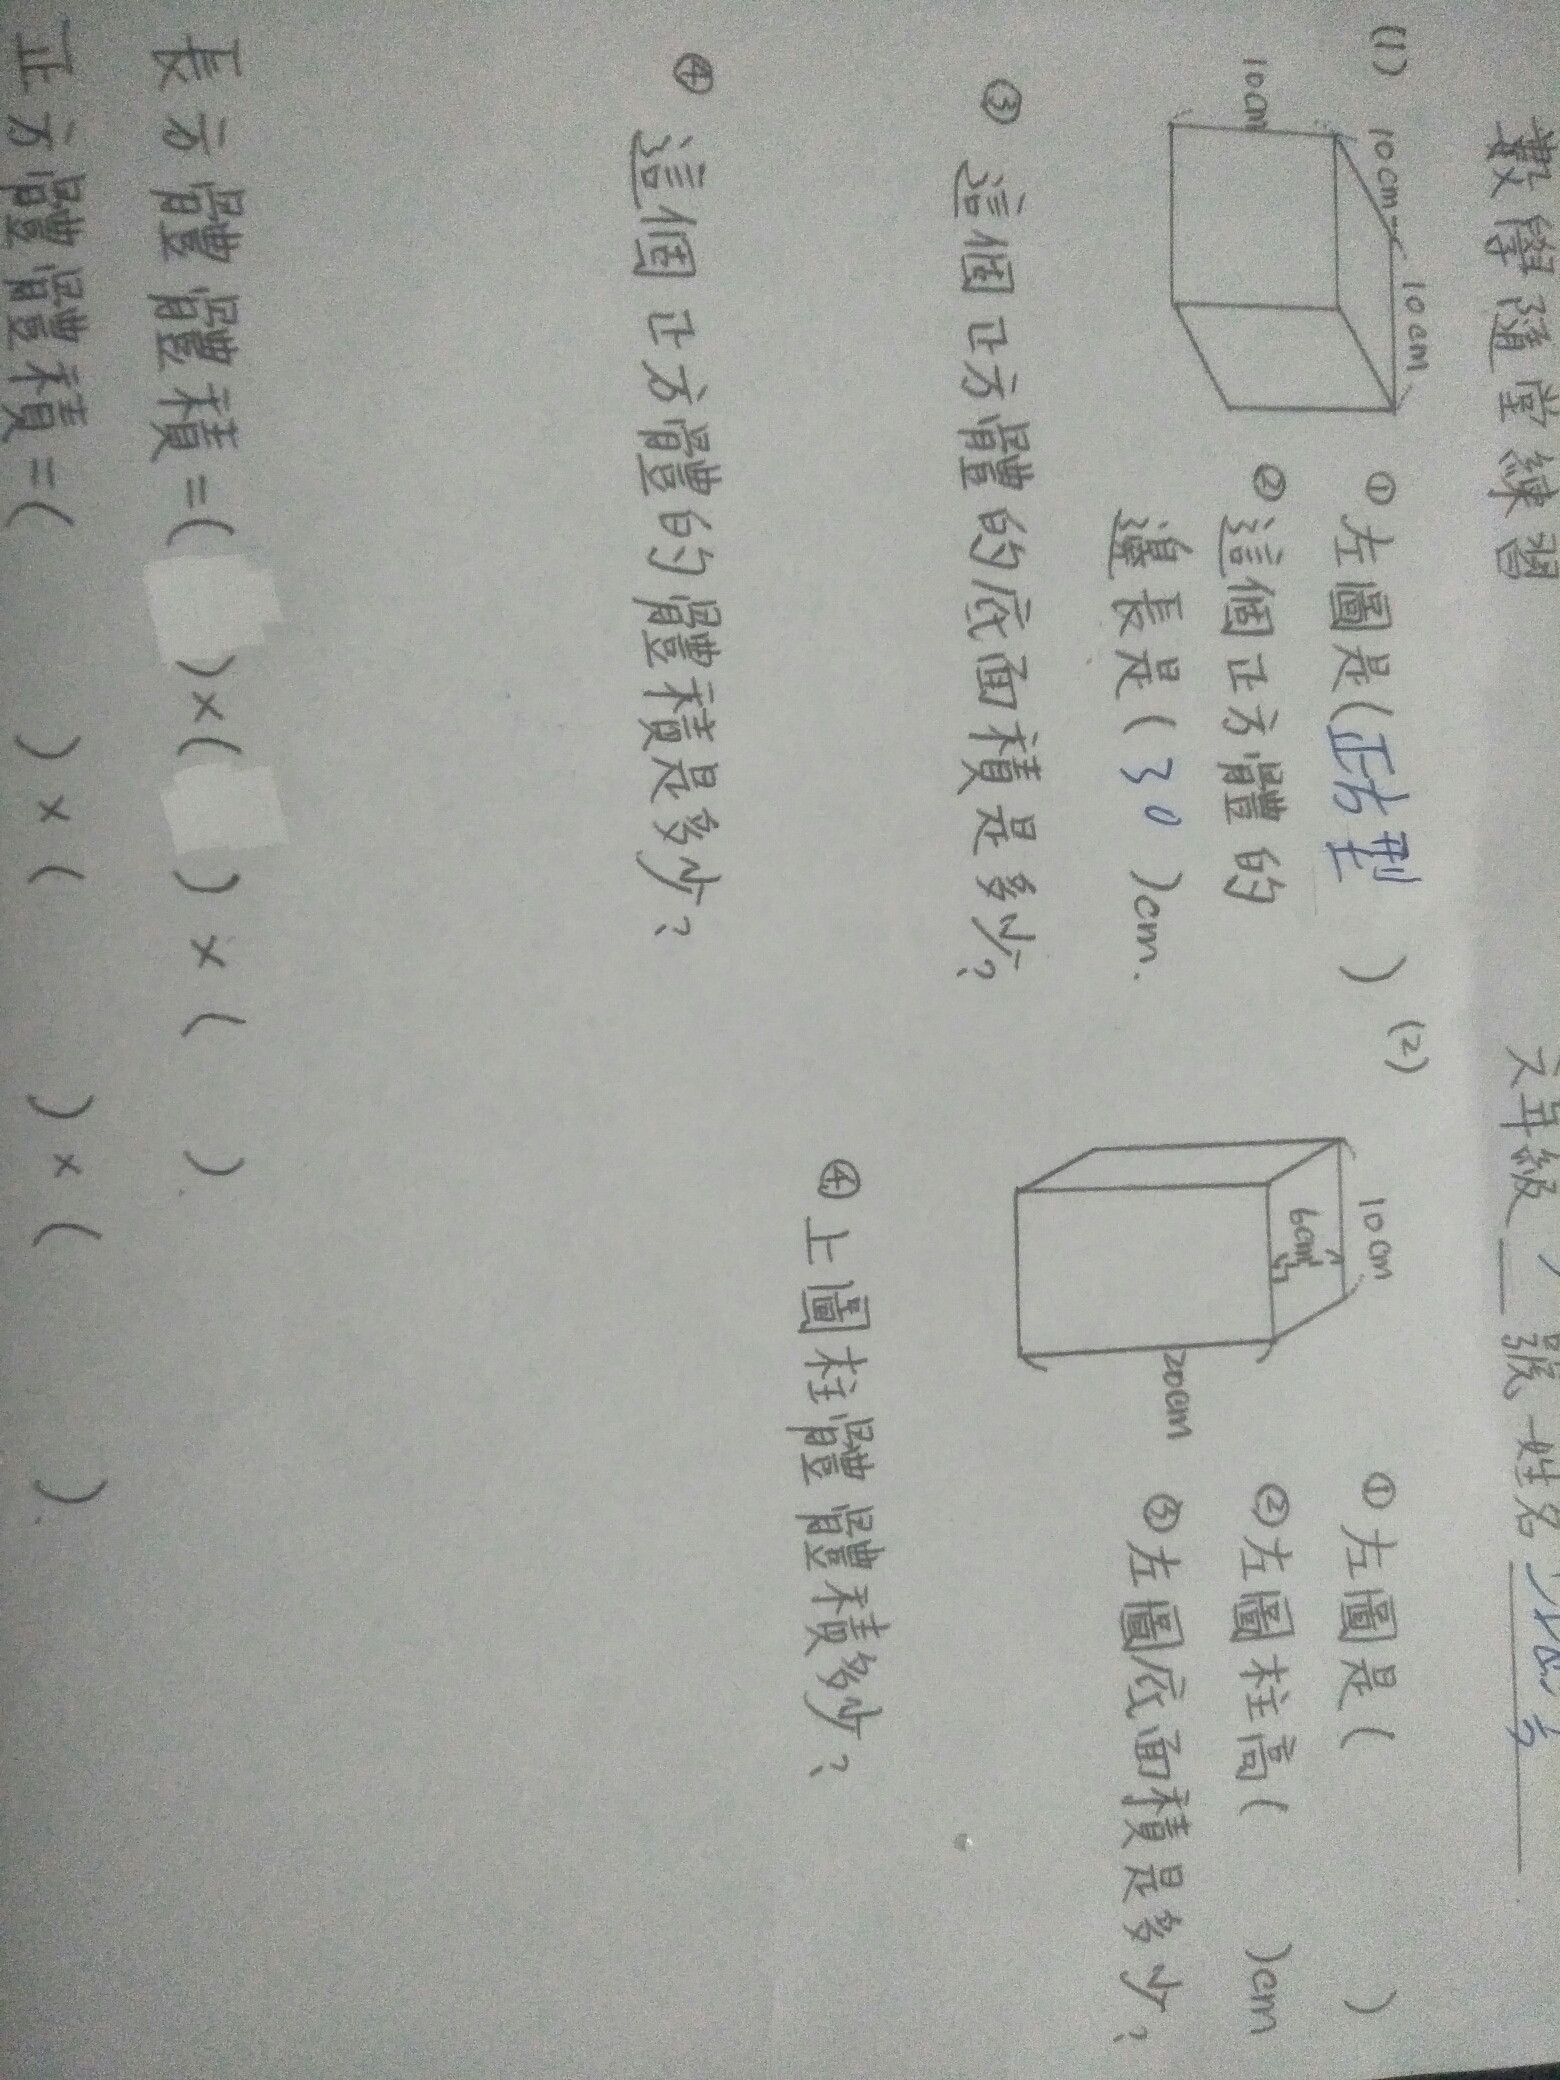 數學隨堂練習
六年級 號 姓名
(1)
10cm
10cm
10cm
①左圖是(正方型 )
②這個正方體的
邊長是(30 )cm.
③ 這個正方體的底面積是多少?
④ 這個正方體的體積是多少?
(2)
10cm
6cm
20cm
①左圖是( )
②左圖柱高( )cm
③左圖底面積是多少?
④上圖柱體體積多少?
長方體體積=( )×( )×( ).
正方體體積=( )×( )×( ).